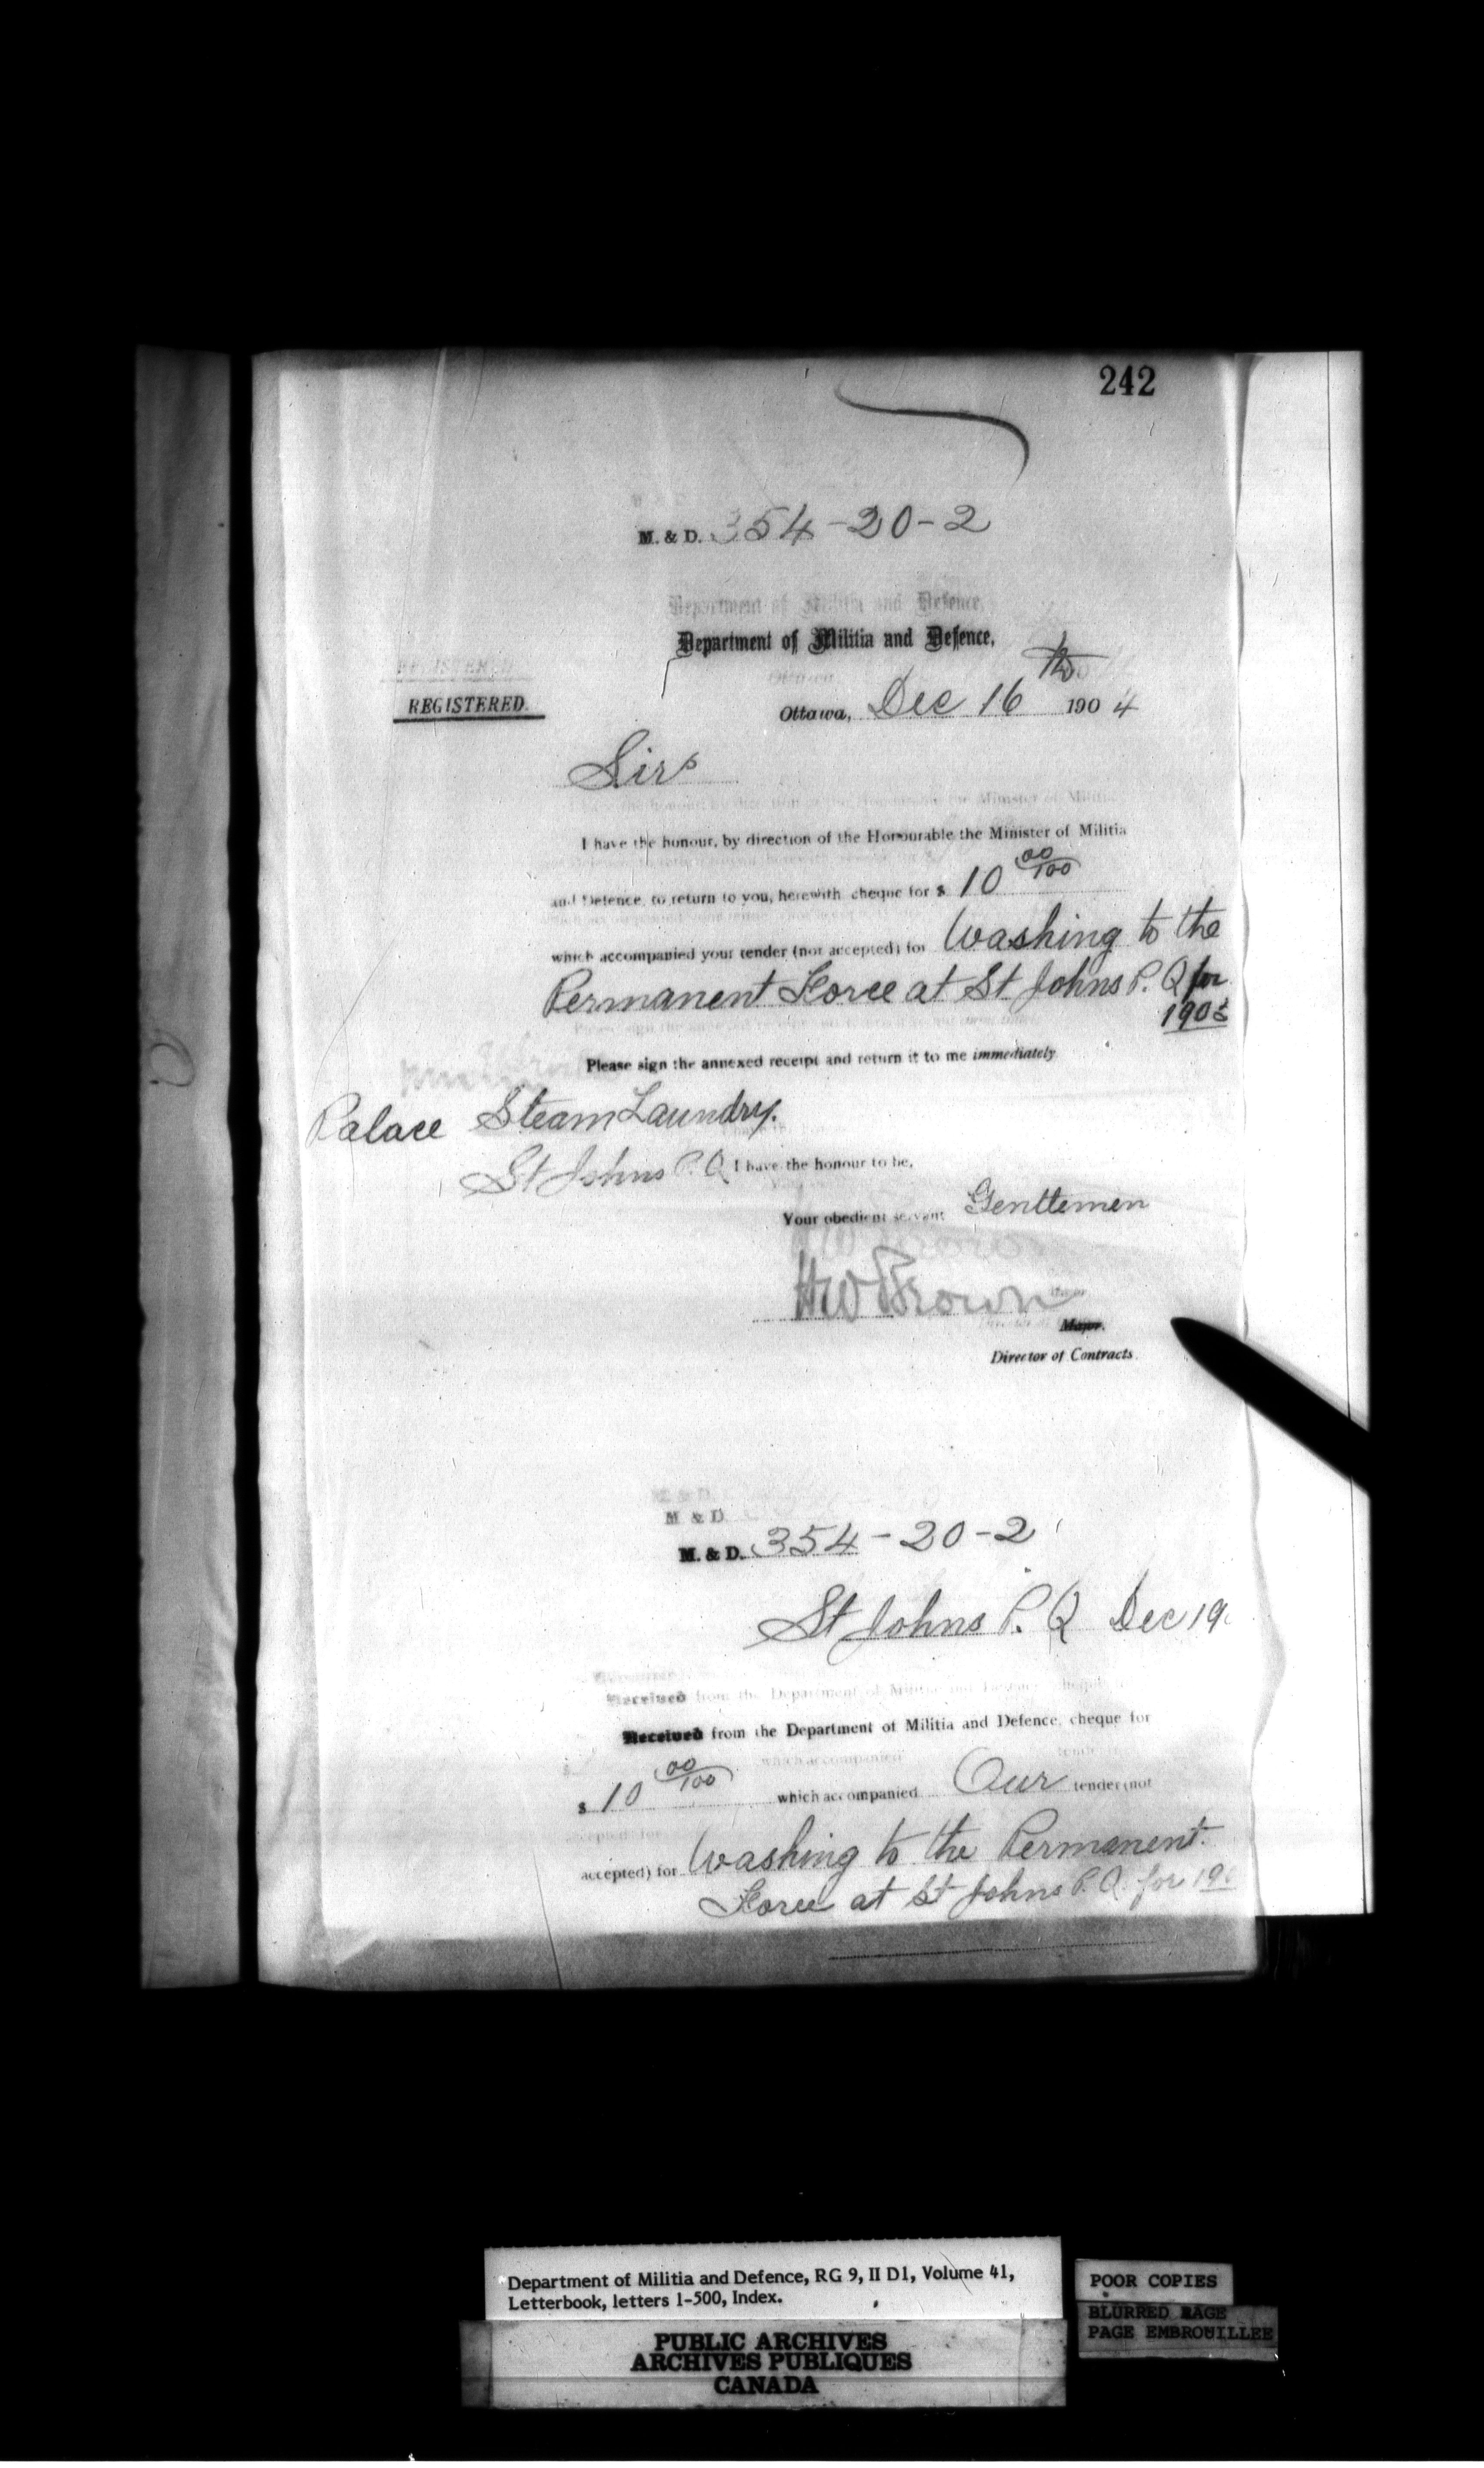 242
M. & D. 354-20-2
Department of Militia and Defence,
REGISTERED.
Ottawa, Dec 16th 1904
Sirs
I have the honour, by direction of the Honourable the Minister of Militia
and Defence, to return to you, herewith cheque for $ 10 00/100
which accompanied your tender (not accepted) for Washing to the
Permanent Force at St Johns P. Q for
1905
Please sign the annexed receipt and return it to me immediately
Palace Steam Laundry.
St Johns P. Q
I have the honour to be,
Gentlemen
Your obedient servant
HW Brown
Major.
Director of Contracts.
M & D
M. & D. 354-20-2
St Johns P. Q Dec 19
Received from the Department of Militia and Defence, cheque for
$ 10 00/100 which accompanied Our tender (not
accepted) for Washing to the Permanent
Force at St Johns P. Q. for 19
Department of Militia and Defence, RG 9, II D1, Volume 41,
Letterbook, letters 1-500, Index.
POOR COPIES
BLURRED PAGE
PAGE EMBROUILLEE
PUBLIC ARCHIVES
ARCHIVES PUBLIQUES
CANADA